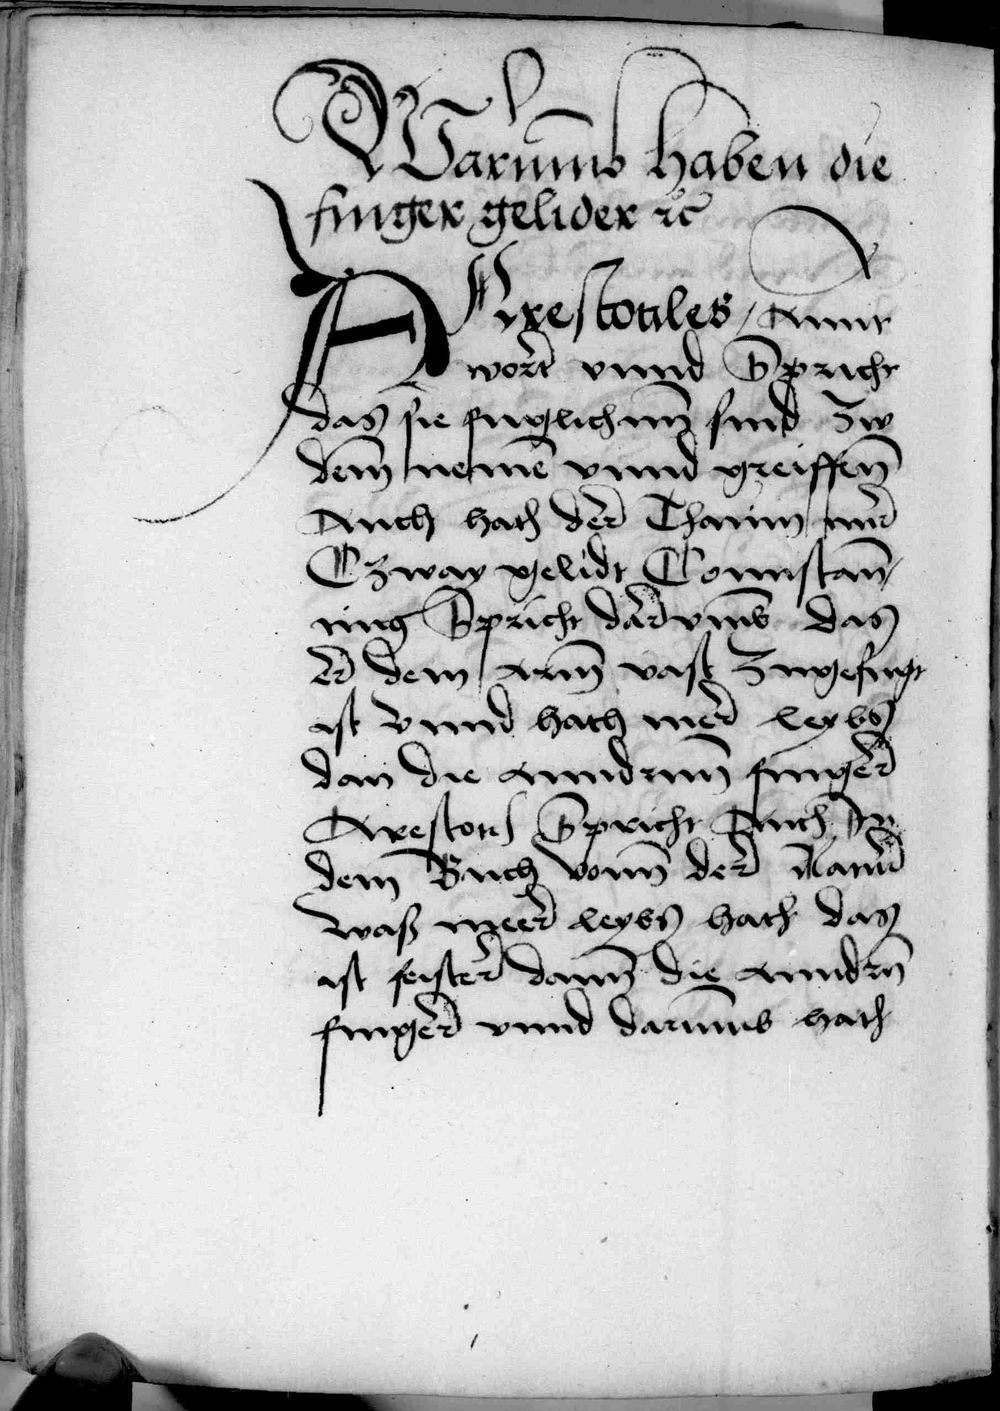 Warumb haben die
finger gelider ꝛc
ARestotiles / Annt
wort vnnd Spricht
das sie fuglichnn sind Zw
dem nemē vnnd greiffen
Auch hath der Thaum nur
Czway gelidt Connstan
tinꝯ Spricht darvmb das
er dem Arm vast Zugefugt
ist vnnd hath mer leybs
dan die Anndrnn finger
Arestotilˢ Spricht Auch In
dem Buch vonn der Natur
Was meer leybs hath das
ist feister dann die Anndrn
finger vnnd darumb hath